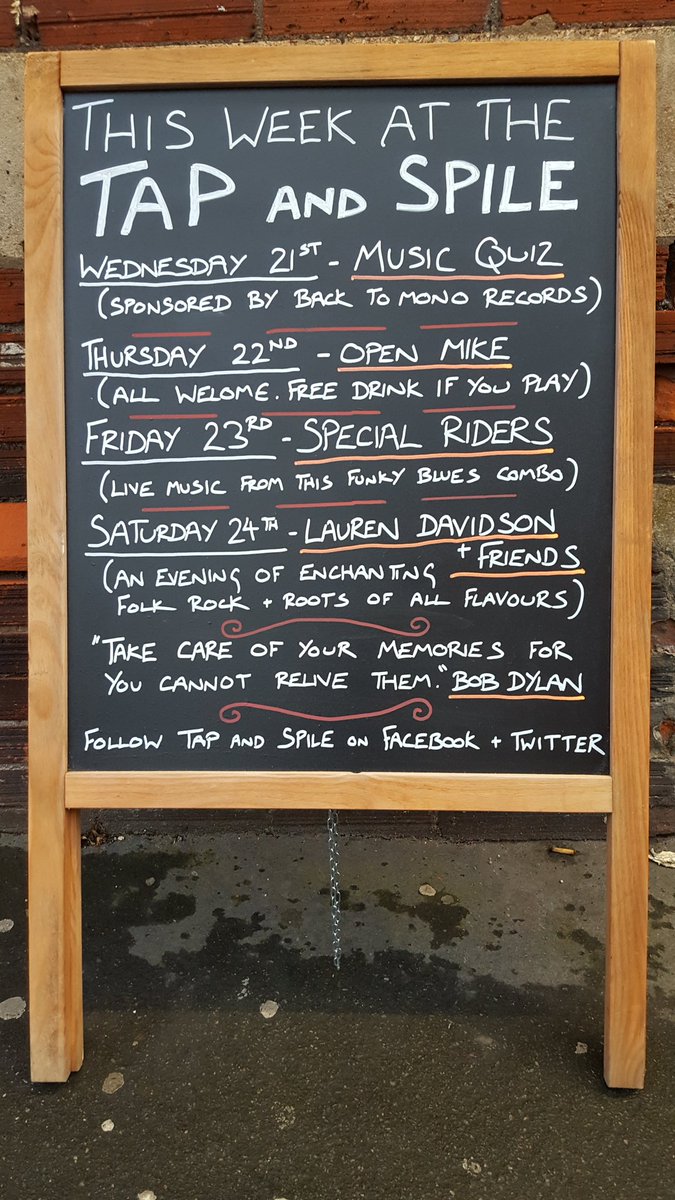 THIS WEEK AT THE
TAP AND SPILE
WEDNESDAY 21ST - MUSIC QUIZ
(SPONSORED BY BACK TO MONO RECORDS)
THURSDAY 22ND - OPEN MIKE
(ALL WELOME. FREE DRINK IF YOU PLAY)
FRIDAY 23RD - SPECIAL RIDERS
(LIVE MUSIC FROM THIS FUNKY BLUES COMBO)
SATURDAY 24TH - LAUREN DAVIDSON
+ FRIENDS
(AN EVENING OF ENCHANTING
FOLK ROCK + ROOTS OF ALL FLAVOURS)
"TAKE CARE OF YOUR MEMORIES FOR
YOU CANNOT RELIVE THEM." BOB DYLAN
FOLLOW TAP AND SPILE ON FACEBOOK + TWITTER